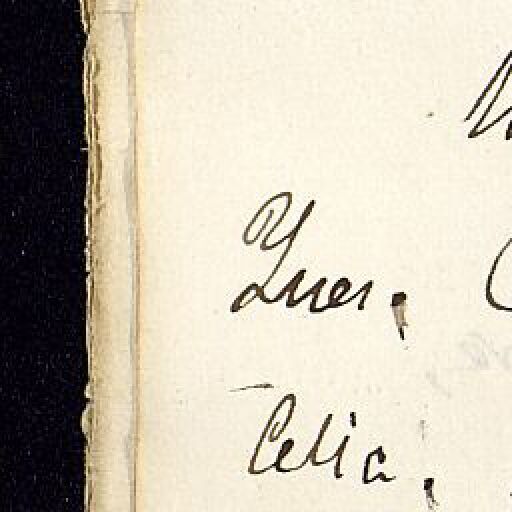 Ynes.
Celia,